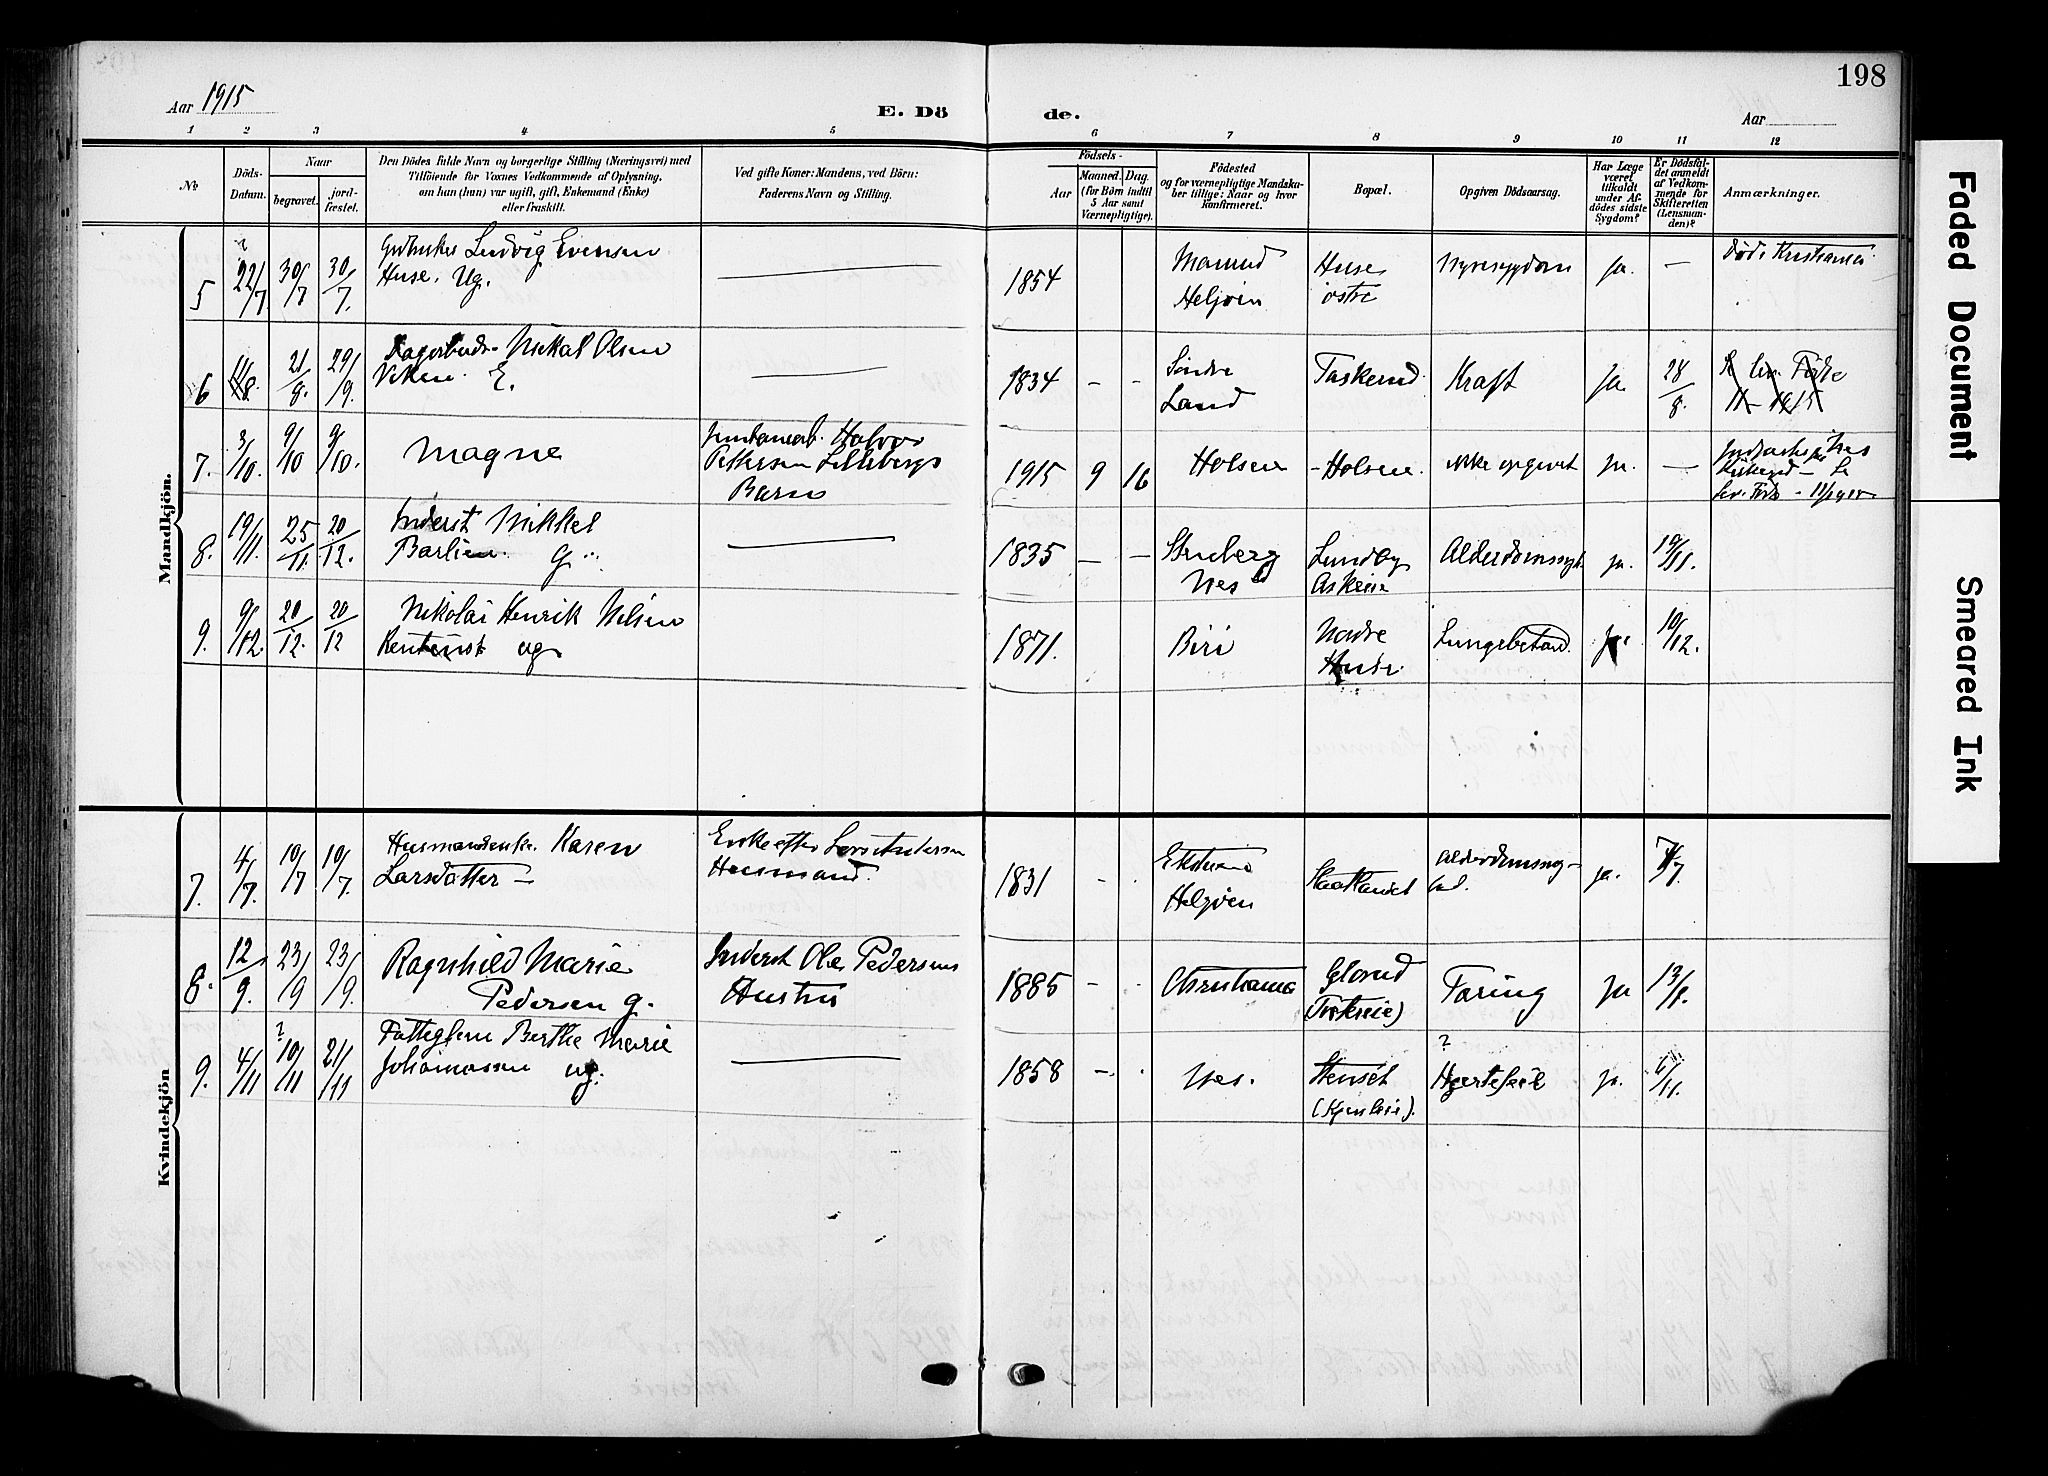 198
Aar 1915
E. Dö
de.
Aar
1 2 3 4 5 6 7 8 9 10 11 12
No
Döds-
Datum.
Naar
begravet.
jord-
fæstet.
Den Dödes fulde Navn og borgerlige Stilling (Næringsvei) med
Tilföiende for Voxnes Vedkommende af Oplysning,
om han (hun) var ugift, gift, Enkemand (Enke)
eller fraskilt.
Ved gifte Koner: Mandens, ved Börn:
Faderens Navn og Stilling.
Födsels-
Aar
Maaned. Dag.
(for Börn indtil
5 Aar samt
Værnepligtige).
Födested
og for værnepligtige Mandska-
ber tillige: Naar og hvor
konfirmeret.
Bopæl.
Opgiven Dödsaarsag.
Har Læge
været
tilkaldt
under Af-
dödes sidste
Sygdom?
Er Dödsfal-
det anmeldt
af Vedkom-
mende for
Skifteretten
(Lensman-
den)?
Anmærkninger.
Mandkjön.
5 ? 22/7 30/7 30/7. Ludvig Evensen
Huse. Ug. — 1854 Helgöen Huse
östre Nyresygdom ja. — Död i Kristiania
6 11/8. 21/8. 29/9. Mikal Olsen
Viken. E. — 1834 - - Söndre
Land Taskerud Kraft ja. 28/8.
7. 3/10. 9/10 9/10. Magne Halvor
Pettersen Lillebergs
Barn 1915 9 16 Holsen - Holsen. ikke opgivet ja. —
8. 19/11. 25/11. 20/12. Inderst Mikkel
Barlien. g. — 1835 — — Stenberg
Nes Lundby
Alderdomssygd. ja. 19/11.
9. 9/12. 20/12. 20/12 Nikolai Henrik Nilsen
Rentenist ug 1871. Biri Nordre
Huse. Lungebetænd. ja. 10/12.
Kvindekjön
7. 4/7. 10/7 10/7. Husmandsenke. Karen
Larsdatter — Enke efter Lars Andersen
Husmand. 1831 - Helgöen ja.
8. 12/9. 23/9 23/9. Ragnhild Marie
Pedersen g. Inderst Ole Pedersens
Hustru 1885 - . Christiania Glorud
Tæring ja
9. 4/11 ? 10/11 21/11 Fattiglem Berthe Marie
Johannessen ug. — 1858 — . Nes. Stenset
? Hjertefeil ja. 6/11.
Faded Document
Smeared Ink